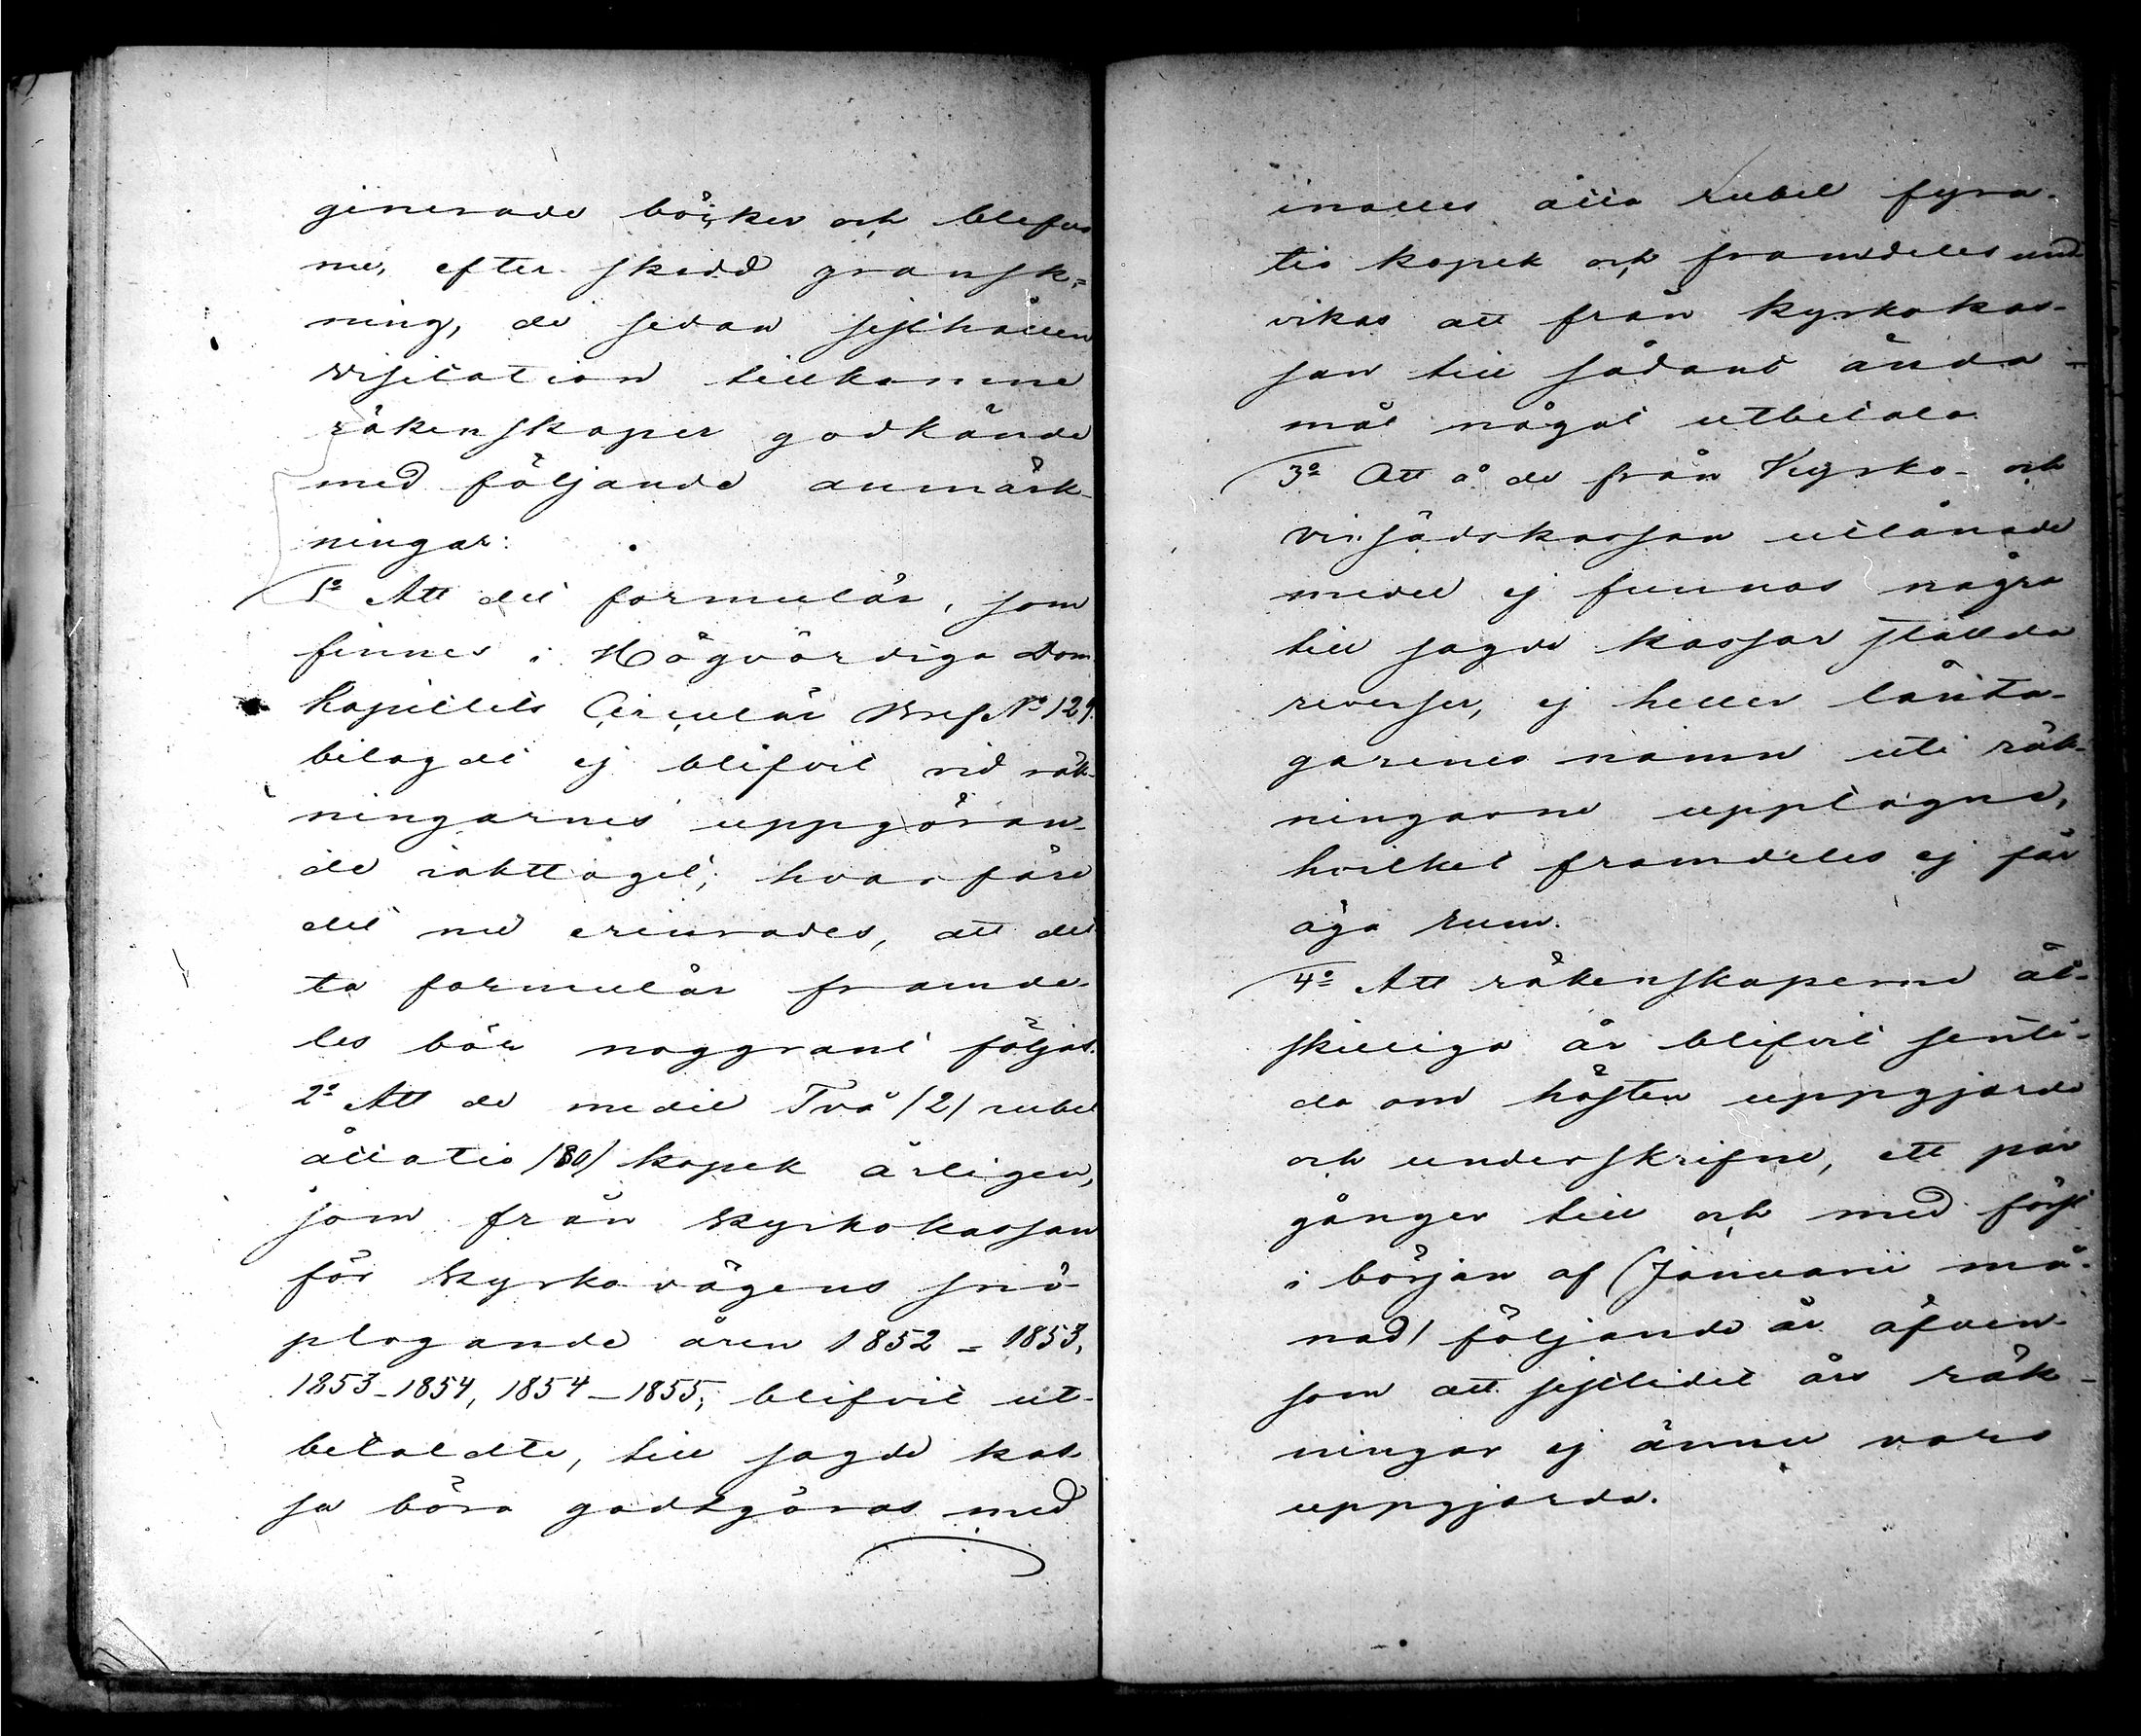 ginerade böcker och blefvo
nu, efter skedd gransk-
ning, de sedan sisthållen
visitation tillkomne
räkenskaper godkände
med följande anmärk-
ningar:
1o Att det formulär, som
finnes i Högvördiga Dom
kapitlets Circulär Bref No 129.
bilagdt ej blifvit vid räk-
ningarnes uppgöran-
de iakttaget; hvarföre
det nu erinrades, att det
ta formulär framde-
les bör noggrant följas.
2o Att de medel Två /2/ rubel
åttatio /80/ kopek årligen,
som från kyrkokassan
för kyrkovägens snö-
plogande åren 1852-1853,
1853-1854, 1854-1855, blifvit ut-
betaldte, till sagde kas
sa böra godtgöras med
inalles åtta rubel fyra-
tio kopek och framdeles und
vikas att från kyrkokas-
san till sådant ända-
mål något utbetala
3o Att å de från Kyrko- och
vinsädskassan utlånade
medel ej funnos några
till sagde kassar ställda
reverser, ej heller lånta-
garenes namn uti räk-
ningarne upptagne,
hvilket framdeles ej får
äga rum.
4o Att räkenskaperne åt-
skilliga år blifvit senti-
da om hösten uppgjorde
och underskrifne, ett par
gånger till och med först
i början af (Januarii må-
nad) följande år äfven-
som att sistlidet års räk-
ningar ej ännu voro
uppgjorda.